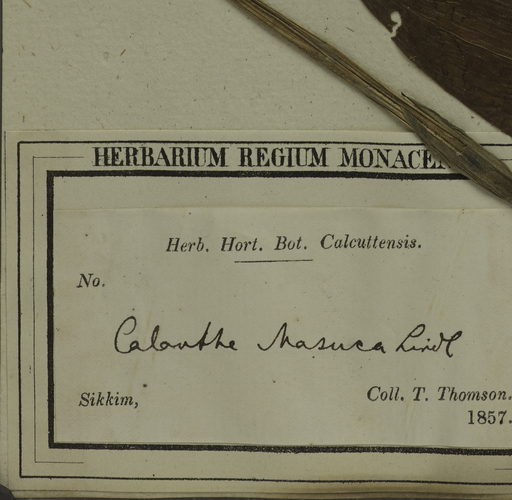 HERBARIUM REGIUM MONACE
Herb. Hort. Bot. Calcuttensis.
No.
Calanthe Masuca Lindl
Sikkim, Coll. T. Thomson.
1857.